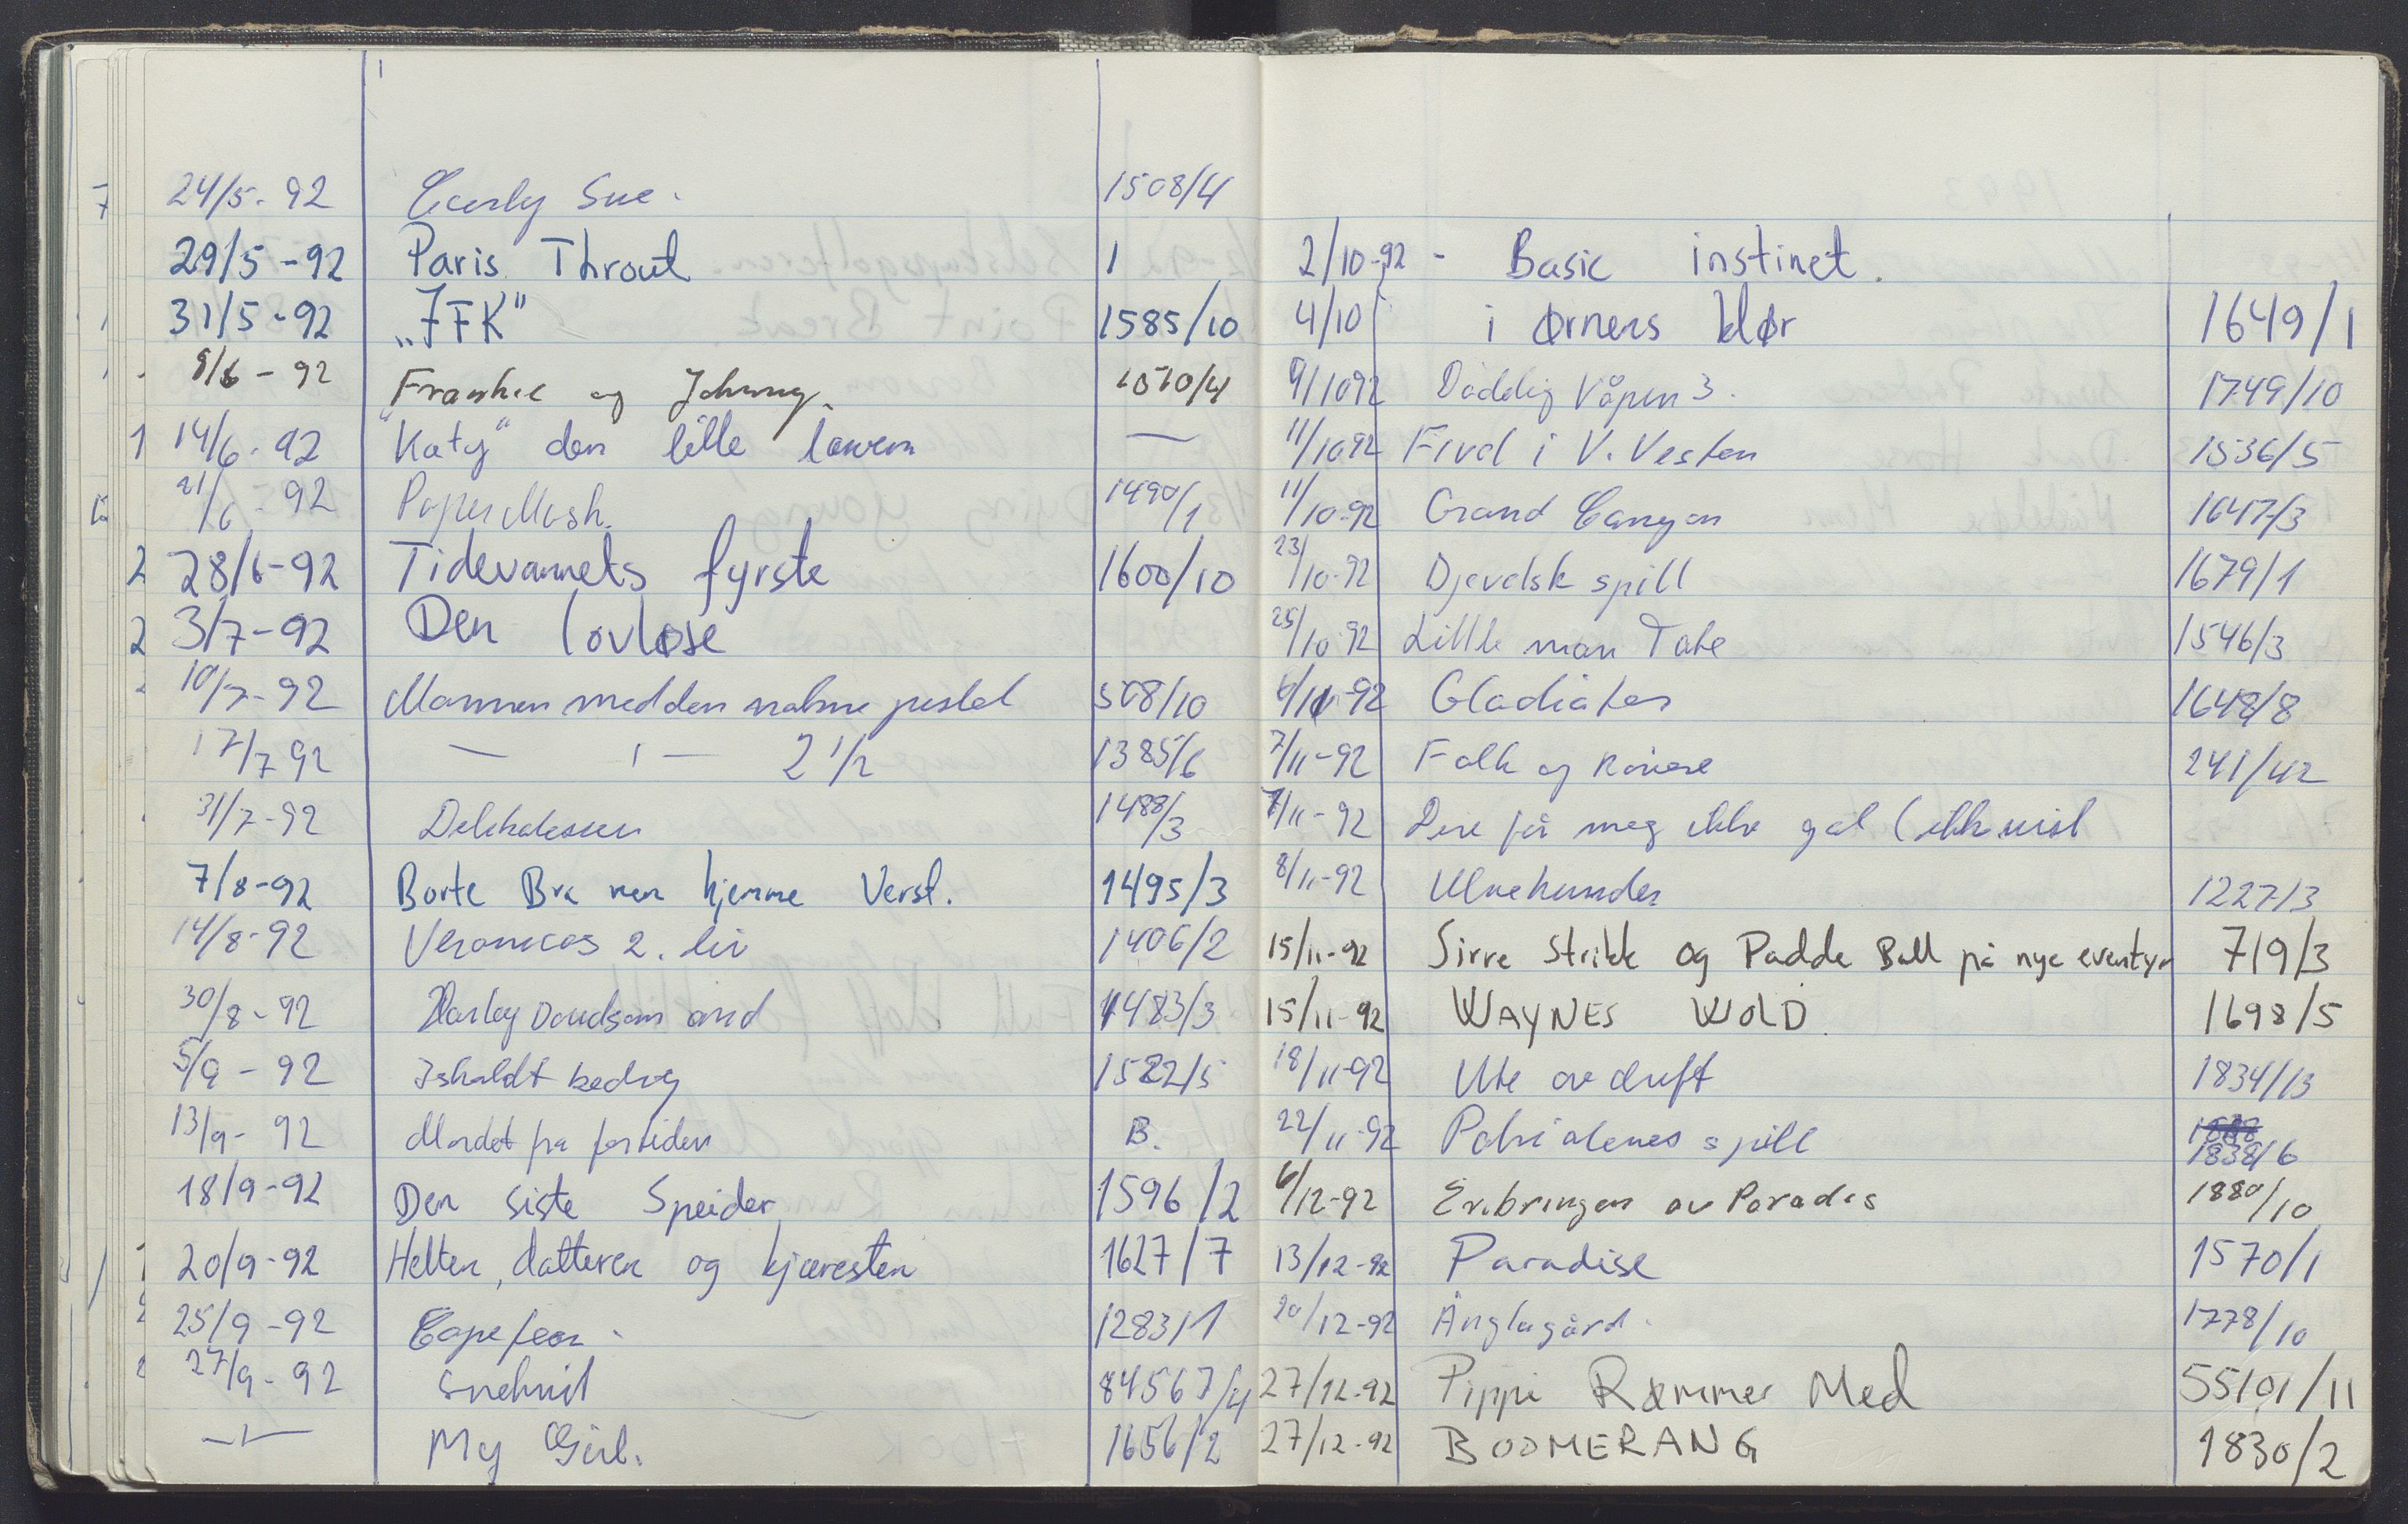 24/5-92 Curly Sue. 1508/4
29/5-92 Paris Throut 1
31/5-92 „JFK" 1585/10
9/6-92 Frankie og Johnny. 1510/4
14/6-92 "Katy" den lille larven —
21/6-92 Paper Mash. 1490/1
28/6-92 Tidevannets fyrste 1600/10
3/7-92 Den lovløse
10/7-92 Mannen med den nakne pistol 508/10
17/7 92 — ı — 2 1/2 1385/6
31/7-92 Delikatessen 1488/3
7/8-92 Borte Bra men hjemme Verst. 1495/3
14/8-92 Veronicas 2. liv 1406/2
30/8-92 Harley Davdson and 1483/3
5/9-92 Iskaldt bedrag 1522/5
13/9-92 Mordet fra fortiden B.
18/9-92 Den siste Speider 1596/2
20/9-92 Helten, datteren og kjæresten 1627/7
25/9-92 Cape fear. 1283/1
27/9-92 Snehvit 84567/4
—ı— My Girl. 1656/2
2/10-92 - Basic instinct.
4/10 i ørnens klør 1649/1
9/1092 Dødelig Våpen 3. 1749/10
11/1092 Fivel i V. Vesten 1536/5
11/10-92 Grand Canyon 1647/3
23/10-92 Djevelsk spill 1679/1
25/10 92 Little man Tate 1546/3
6/11-92 Gladiator 1648/8
7/11-92 Folk og røvere 241/42
7/11-92 Dere får meg ikke ned (ikke vist
8/11-92 Ulvehunden 1227/3
15/11-92 Sirre Strikk og Padde Ball på nye eventyr 719/3
15/11-92 WAYNES WOLD. 1698/5
18/11-92 Ute av drift 1834/13
22/11-92 Patriotenes spill 1838/6
6/12-92 Erobringen av Paradis 1880/10
13/12-92 Paradise 1570/1
20/12-92 Änglagård. 1778/10
27/12-92 Pippi Rømmer Med 55101/11
27/12-92 BOOMERANG 1830/2